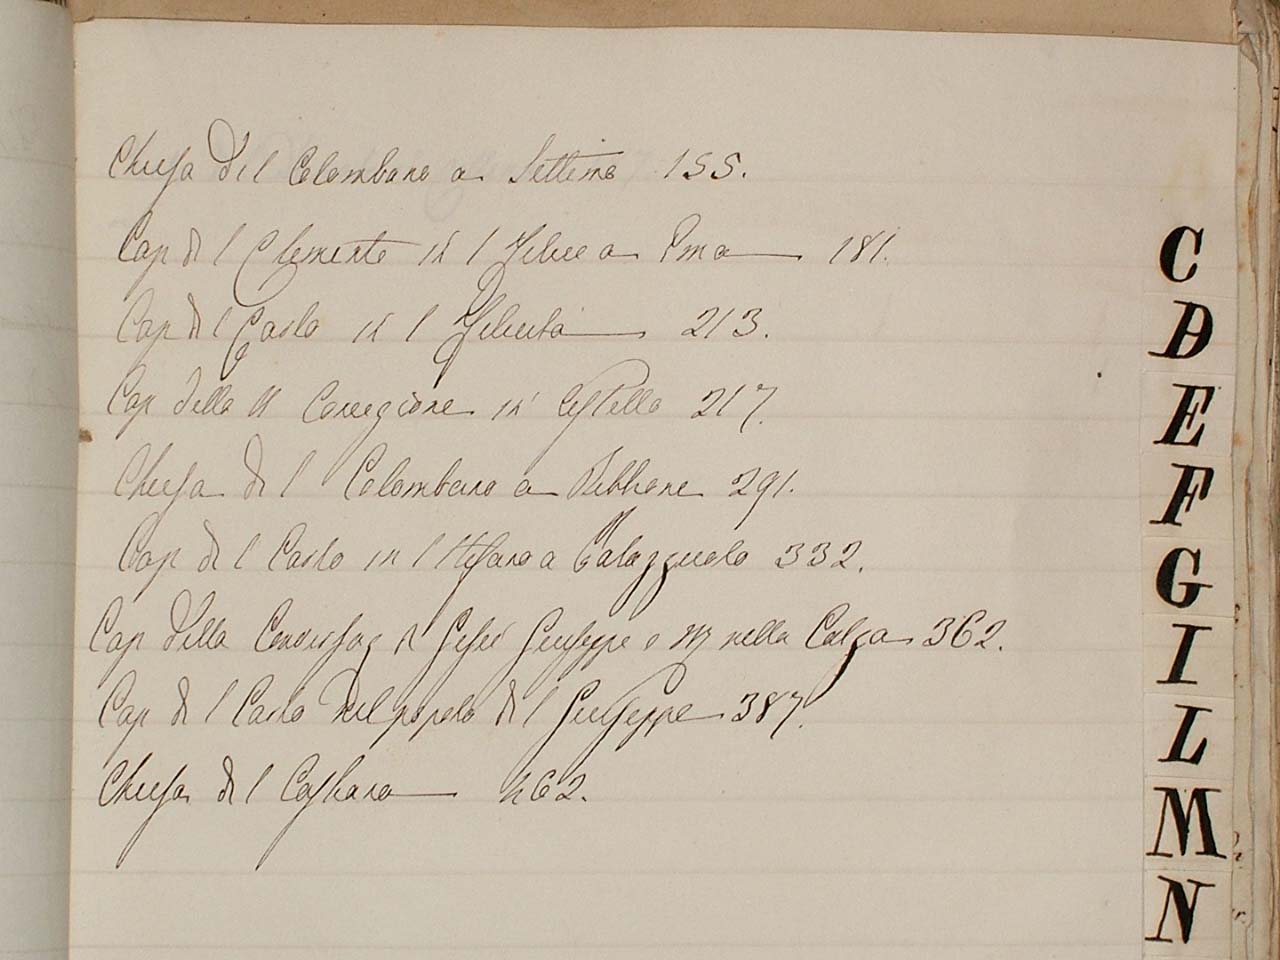 Chiesa di S Colombano a Settimo 155.
Cap di S Clemente in S Felice a Ema 181.
Cap di S Carlo in S Felicita 213.
Cap della Concezione in Castello 217.
Chiesa di S Colombano a Bibbione 291.
Cap di S Carlo in S Stefano a Palazzuolo 332.
Cap della di Gesù Giuseppe e M nella Calza 362.
Cap di S Carlo nel popolo di S Giuseppe 387.
Chiesa di S Cassiano 462.
C
D
E
F
G
I
L
M
N